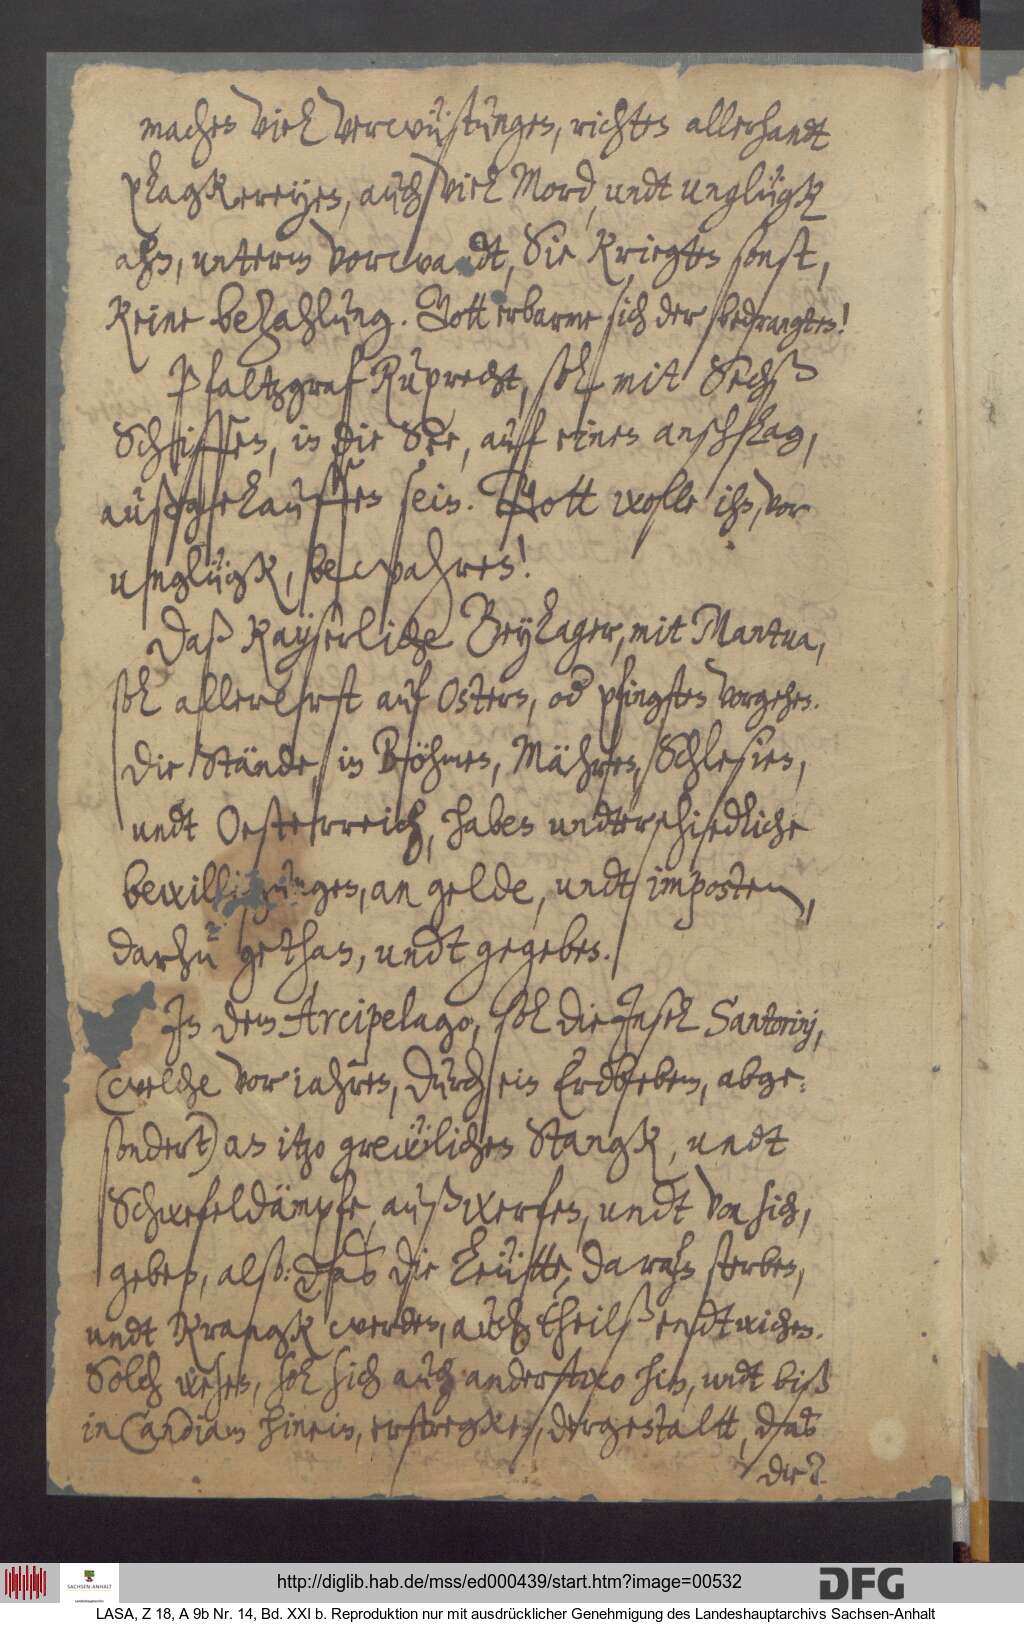 machen viel verwüstungen, richten allerhandt
plagkereyen, auch viel Mord, undt unglügk
ahn, unterm vorwandt, Sie kriegten sonst,
keine bezahlung. Gott erbarme sich der bedrangten!
Pfaltzgraf Ruprecht, sol mit Sechß
Schiffen, in die See, auf einen anschlag,
außgelauffen sein. Gott wolle ihn, vor
unglügk, bewahren!
Daß Kayserliche Beylager, mit Mantua,
sol allererst auf Ostern, od pfingsten vorgehen.
Die Stände, in Böhmen, Mähren, Schlesien,
undt Oesterreich, haben undterschiedliche
bewilligungen, an gelde, undt imposten,
darzu gethan, undt gegeben.
In dem Arcipelago, sol die Insel Santorinj,
(welche vor iahren, durch ein Erdbeben, abge-
sondert) an itzo grewlichen Stangk, undt
Schwefeldämpfe, außwerfen, undt von sich,
geben, alß: daß die leütte, daran sterben,
undt krangk werden, auch theilß endtwichen.
Solch wesen, sol sich auch anderstwo hin, undt biß
in Candiam hinein, erstregken, dergestaltt, daß
die
http://diglib.hab.de/mss/ed000439/start.htm?image=00532
SACHSEN-ANHALT
Landeshauptarchiv
DFG
LASA, Z 18, A 9b Nr. 14, Bd. XXI b. Reproduktion nur mit ausdrücklicher Genehmigung des Landeshauptarchivs Sachsen-Anhalt